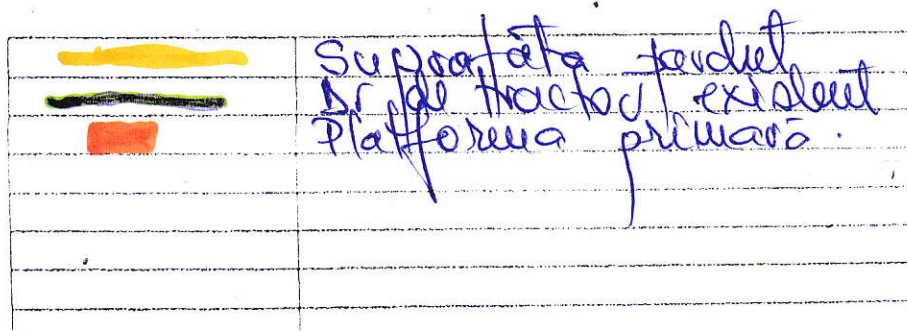 Suprafata parchet
Dr de tractor existent
Platforma primară.